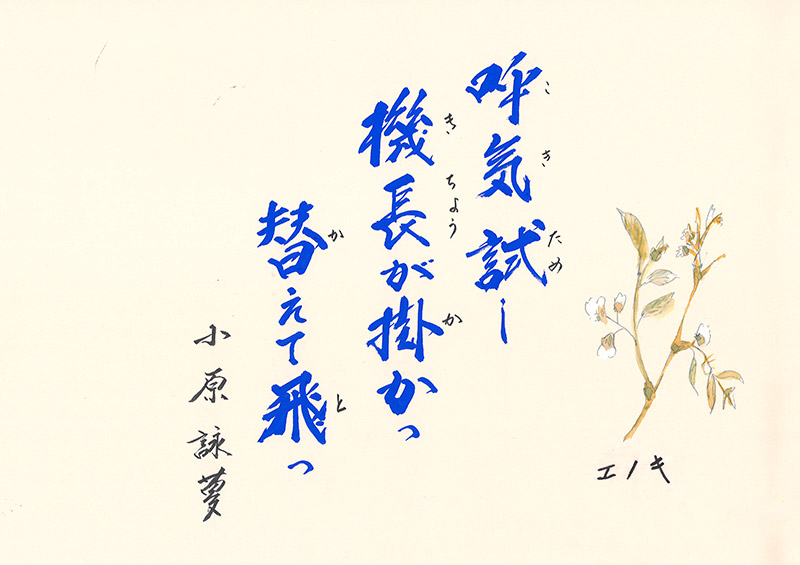 エノキ
呼気試し
こき ため
機長が掛かっ
きちょう か
替えて飛っ
か と
小原詠夢